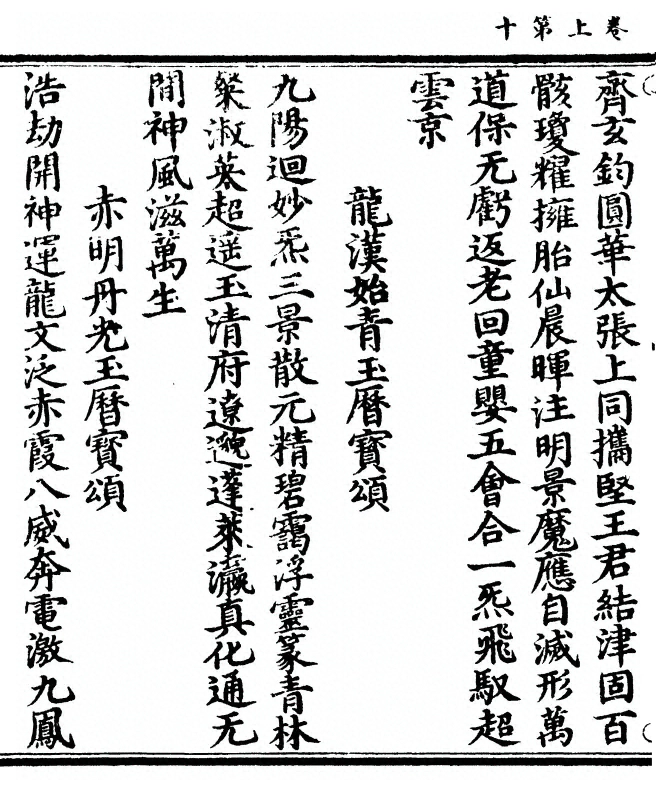 卷上第十
齊玄鈞圓華太張上同攜堅王君結津固百
骸瓊耀擁胎仙晨暉注明景魔應自滅形萬
道保无虧返老回童嬰五會合一炁飛馭超
雲京
龍漢始青玉曆寶頌
九陽迴妙炁三景散元精碧靄浮靈篆青林
粲淑英超遥玉清府遼邈蓬萊瀛真化通无
間神風滋萬生
赤明丹光玉曆寶頌
浩劫開神運龍文泛赤霞八威奔電激九鳳